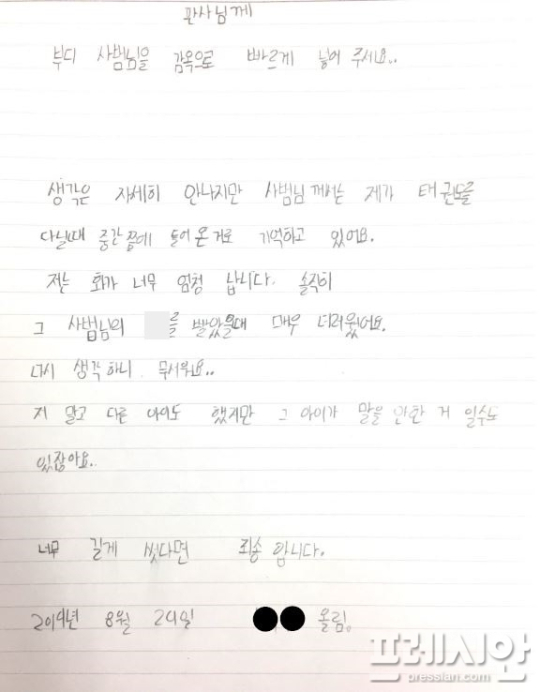 판사님께
부디 사범님을 감옥으로 빠르게 넣어 주세요..
생각은 자세히 안나지만 사범님께서는 제가 태권도를
다닐때 중간쯤에 들어온거로 기억하고 있어요.
저는 화가 너무 엄청 납니다. 솔직히
그 사범님의 를 빨았을때 매우 더러웠어요.
다시 생각하니 무서워요..
저 말고 다른 아이도 했지만 그 아이가 말을 안한 거 일수도
있잖아요..
너무 길게 썼다면 죄송합니다.
2019년 8월 24일 올림.
프레시안
pressian.com